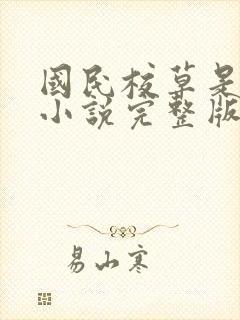 國民校草是
小說完整版
易山寒